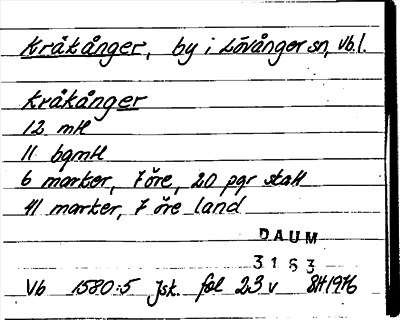 Kråkånger, by i Lövånger sn, Vb.l.
Kråkånger
12 mtl
11 bgmtl
6 marker, 7 öre, 20 pgr skatt
41 marker, 7 öre land
DAUM
3163
Vb 1580:5 Jsk. fol 23 v 8/4 1976